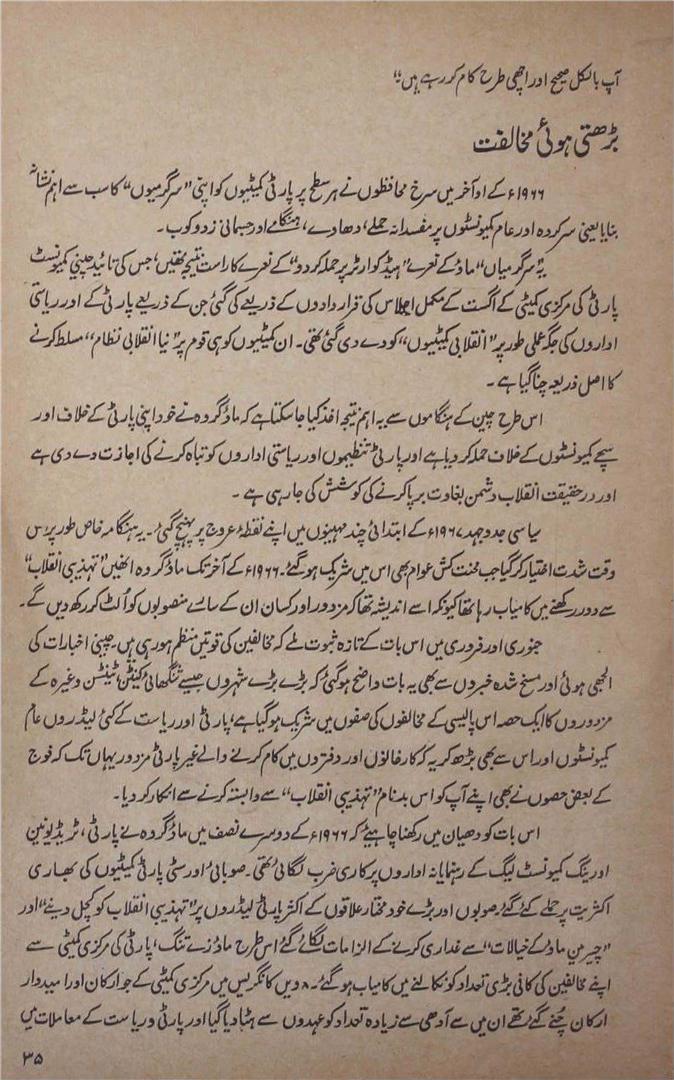 آپ بالکل صحیح اور اچھی طرح کام کر رہے ہیں۔"
بڑھتی ہوئی مخالفت
۱۹۶۶ء کے اواخر میں سرخ محافظوں نے ہر سطح پر پارٹی کمیٹیوں کو اپنی "سرگرمیوں" کا سب سے اہم نشانہ
بنایا یعنی سرکردہ اور عام کمیونسٹوں پر مفسدانہ حملے، دھاوے، ہنگامے اور جسمانی زدوکوب۔
یہ "سرگرمیاں" ماؤ کے نعرے "ہیڈ کوارٹر پر حملہ کر دو" کے نعرے کا راست نتیجہ تھیں، جس کی تائید چینی کمیونسٹ
پارٹی کی مرکزی کمیٹی کے اگست کے مکمل اجلاس کی قراردادوں کے ذریعے کی گئی جن کے ذریعے پارٹی کے اور ریاستی
اداروں کی جگہ عملی طور پر "انقلابی کمیٹیوں" کو دے دی گئی تھی۔ ان کمیٹیوں کو ہی قوم پر "نیا انقلابی نظام" مسلط کرنے
کا اصل ذریعہ چنا گیا ہے۔
اس طرح چین کے ہنگاموں سے یہ اہم نتیجہ اخذ کیا جا سکتا ہے کہ ماؤ گروہ نے خود اپنی پارٹی کے خلاف اور
سچے کمیونسٹوں کے خلاف حملہ کر دیا ہے اور پارٹی تنظیموں اور ریاستی اداروں کو تباہ کرنے کی اجازت دے دی ہے
اور در حقیقت انقلاب دشمن بغاوت برپا کرنے کی کوشش کی جا رہی ہے۔
سیاسی جدوجہد ۱۹۶۷ء کے ابتدائی چند مہینوں میں اپنے نقطۂ عروج پر پہنچ گئی۔ یہ ہنگامہ خاص طور پر اس
وقت شدت اختیار کر گیا جب محنت کش عوام بھی اس میں شریک ہو گئے۔ ۱۹۶۶ء کے آخر تک ماؤ گروہ انھیں "تہذیبی انقلاب"
سے دور رکھنے میں کامیاب رہا تھا کیونکہ اسے اندیشہ تھا کہ مزدور اور کسان ان کے سارے منصوبوں کو اُلٹ کر رکھ دیں گے۔
جنوری اور فروری میں اس بات کے تازہ ثبوت ملے کہ مخالفین کی قوتیں منظم ہو رہی ہیں۔ چینی اخبارات کی
الجھی ہوئی اور مسخ شدہ خبروں سے بھی یہ بات واضح ہو گئی کہ بڑے بڑے شہروں جیسے شنگھائی، کینٹن، ٹینٹسن وغیرہ کے
مزدوروں کا ایک حصہ اس پالیسی کے مخالفوں کی صفوں میں شریک ہو گیا ہے، پارٹی اور ریاست کے کئی لیڈروں عام
کمیونسٹوں اور اس سے بھی بڑھ کر یہ کہ کارخانوں اور دفتروں میں کام کرنے والے غیر پارٹی مزدور یہاں تک کہ فوج
کے بعض حصوں نے بھی اپنے آپ کو اس بدنام "تہذیبی انقلاب" سے وابستہ کرنے سے انکار کر دیا۔
اس بات کو دھیان میں رکھنا چاہیئے کہ ۱۹۶۶ء کے دوسرے نصف میں ماؤ گروہ نے پارٹی، ٹریڈ یونین
اور ینگ کمیونسٹ لیگ کے رہنمایانہ اداروں پر کاری ضرب لگائی تھی۔ صوبائی اور سٹی پارٹی کمیٹیوں کی بھاری
اکثریت پر حملے کئے گئے۔ صوبوں اور بڑے خود مختار علاقوں کے اکثر پارٹی لیڈروں پر "تہذیبی انقلاب کو کچل دینے" اور
"چیرمین ماؤ کے خیالات" سے غداری کرنے کے الزامات لگائے گئے۔ اس طرح ماؤزے تنگ، پارٹی کی مرکزی کمیٹی سے
اپنے مخالفین کی کافی بڑی تعداد کو نکالنے میں کامیاب ہو گئے۔ ۸ ویں کانگریس میں مرکزی کمیٹی کے جو ارکان اور امیدوار
ارکان چُنے گئے تھے ان میں سے آدھی سے زیادہ تعداد کو عہدوں سے ہٹا دیا گیا اور پارٹی و ریاست کے معاملات میں
۳۵